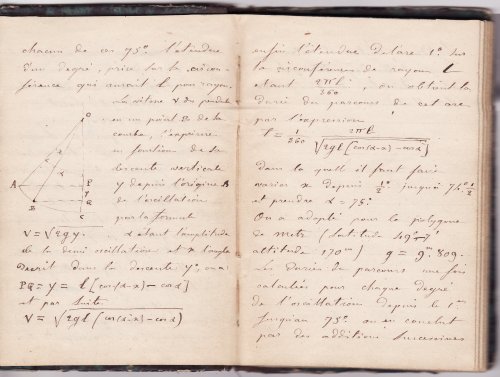 chacun de ces 75°. l'étendue
d'un degré, prise sur la circon-
férence qui aurait l pour rayon,
La vitesse V du pendule
en un point B de la
courbe, s'exprime
en fonction de la
descente verticale
y depuis l'origine A
de l'oscillation
par la formule
O
A
B
P
Q
V = √2gy. α étant l'amplitude
de la demi oscillation et x l'angle
décrit dans la descente y, on a:
PQ = y = l [cos(α-x) - cos α]
et par suite
V = √2gl [cos(α-x) - cos α]
enfin l'étendue de l'arc 1° sur
la circonférence de rayon l
étant 2πl/360, on obtient la
durée du parcours de cet arc
par l'expression
t = 1/360 2πl/√2gl [cos(α-x) - cos α]
dans laquelle il faut faire
varier x depuis 1/2° jusqu'à 74° 1/2
et prendre α = 75°
On a adopté pour le polygone
de Metz (latitude 49°
altitude 170m) g = 9m.809.
Les durées de parcours une fois
calculées pour chaque degré
de l'oscillation depuis le 1er
jusqu'au 75° on en conclut
par des additions successives